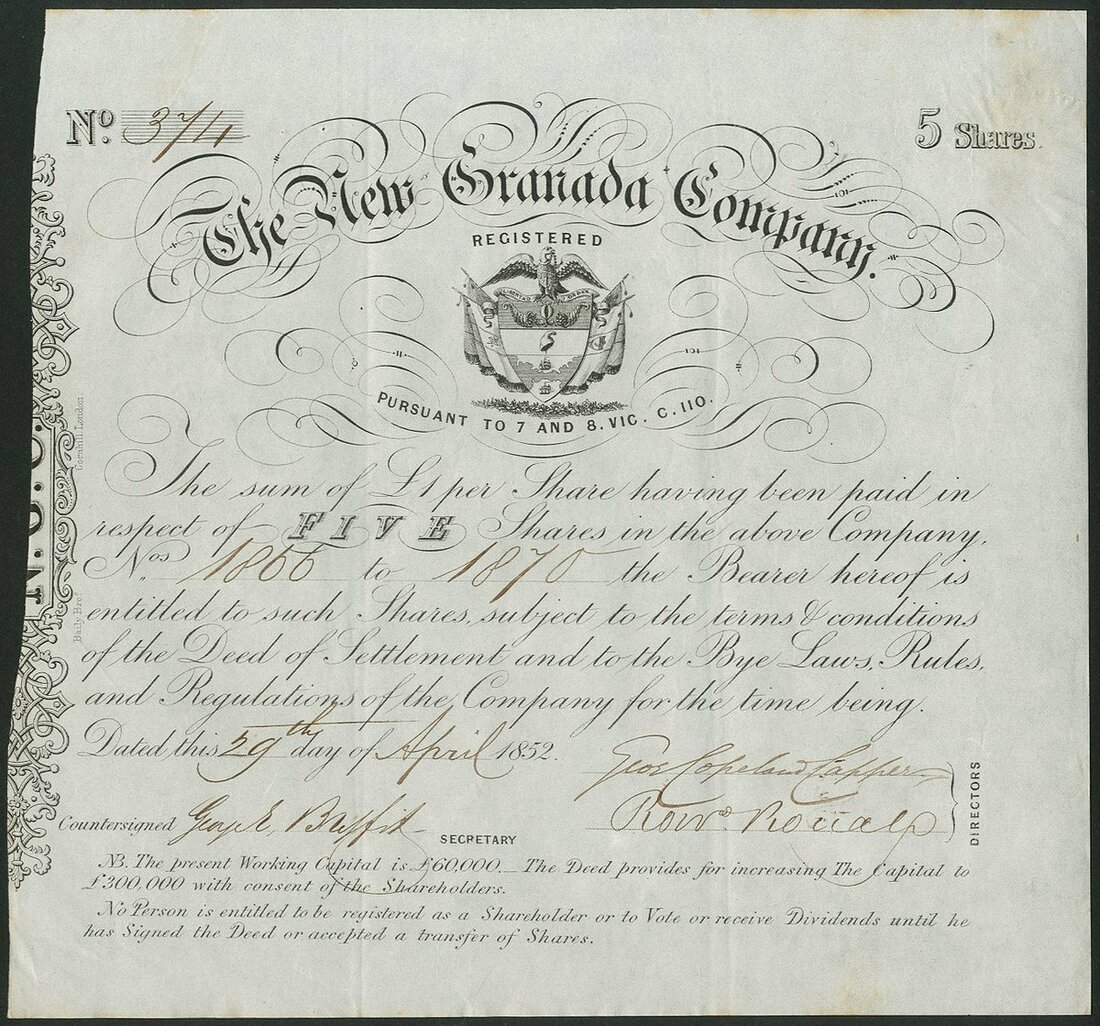 No. 374
5 Shares.
The New Granada Company.
REGISTERED
LIBERTAD Y ORDEN
PURSUANT TO 7 AND 8. VIC. C. 110.
The sum of £1 per Share having been paid in
respect of FIVE Shares in the above Company,
Nos. 1866 to 1870 the Bearer hereof is
entitled to such Shares, subject to the terms & conditions
of the Deed of Settlement and to the Bye Laws, Rules,
and Regulations of the Company for the time being.
Dated this 29th day of April 1852.
Geo Copeland Capper
Countersigned
SECRETARY
DIRECTORS
NB. The present Working Capital is £60,000. The Deed provides for increasing The Capital to
£300,000 with consent of the Shareholders.
No Person is entitled to be registered as a Shareholder or to Vote or receive Dividends until he
has Signed the Deed or accepted a transfer of Shares.
N.G.C.
Baily Bros. Cornhill London